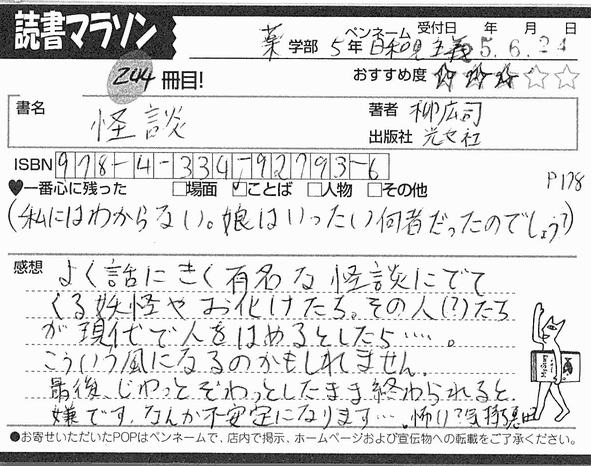 読書マラソン
244冊目!
薬学部 5年 ペンネーム 日和見主義 受付日 年 月 日 5.6.24
おすすめ度 ☆☆☆☆☆
書名 怪談
著者 柳広司
出版社 光文社
ISBN 978-4-334-92793-6
♥一番心に残った □場面 ☑ことば □人物 □その他
P178
(私にはわからない。娘はいったい何者だったのでしょう?)
感想 よく話にきく有名な怪談にでて
くる妖怪やお化けたち。その人(?)たち
が現代で人をはめるとしたら……。
こういう風になるのかもしれません。
最後、じわっとぞわっとしたまま終わられると、
嫌です。なんか不安定になります…。怖い?気持悪い
●お寄せいただいたPOPはペンネームで、店内で掲示、ホームページおよび宣伝物への転載をご了承ください。